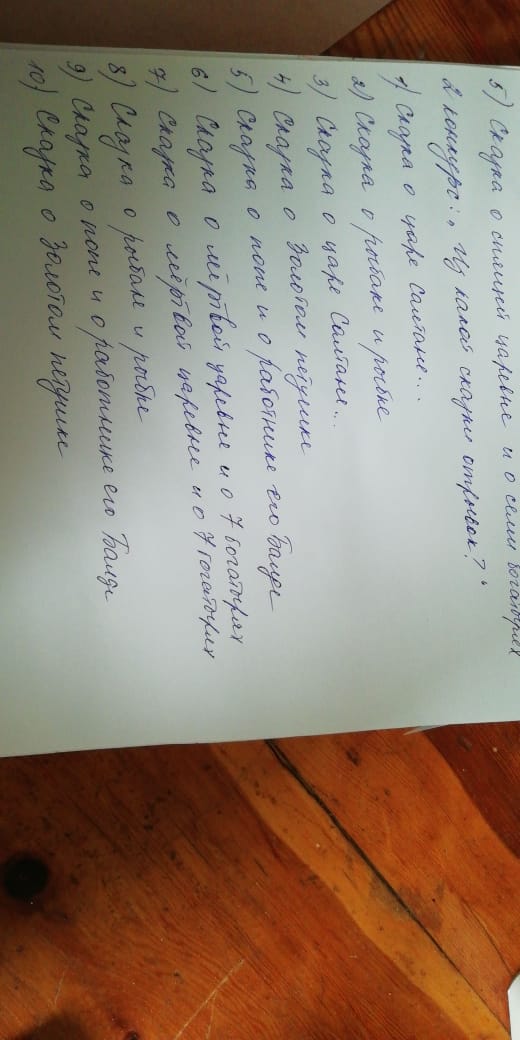 5) Сказка о спящей царевне и о семи богатырях
2 конкурс: „Из какой сказки отрывок?“
1) Сказка о царе Салтане...
2) Сказка о рыбаке и рыбке
3) Сказка о царе Салтане...
4) Сказка о Золотом петушке
5) Сказка о попе и о работнике его Балде
6) Сказка о мёртвой царевне и о 7 богатырях
7) Сказка о мёртвой царевне и о 7 богатырях
8) Сказка о рыбаке и рыбке
9) Сказка о попе и о работнике его Балде
10) Сказка о Золотом петушке